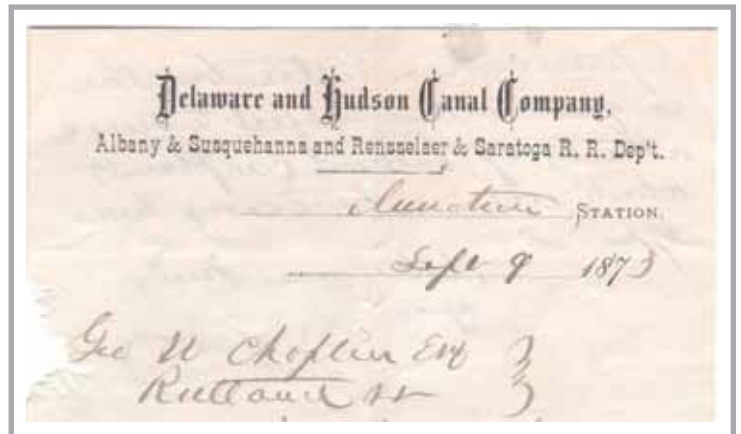 Delaware and Hudson Canal Company,
Albany & Susquehanna and Rensselaer & Saratoga R. R. Dep't.
Junction STATION.
Sept 9 1873
Geo W Choplin Esq }
Rutland Vt }